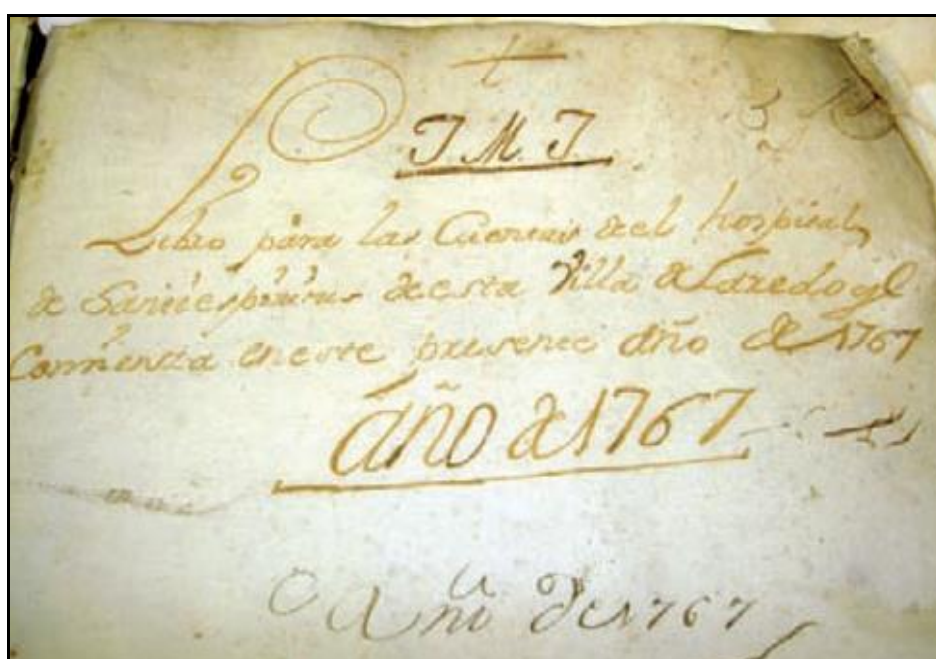 J M J
Libro para las Cuentas del hospital
de Santiespiritus de esta Villa de Laredo q̃
Comiensa en este presente año de 1767
año de 1767
Año de 1767